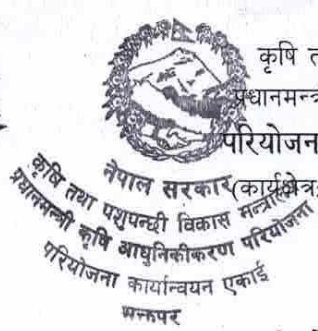 कृषि त
प्रधानमन्त्र
परियोजन
(कार्यक्षेत्र:
नेपाल सरकार
कृषि तथा पशुपन्छी विकास मन्त्रालय
प्रधानमन्त्री कृषि आधुनिकीकरण परियोजना
परियोजना कार्यान्वयन एकाई
भक्तपुर